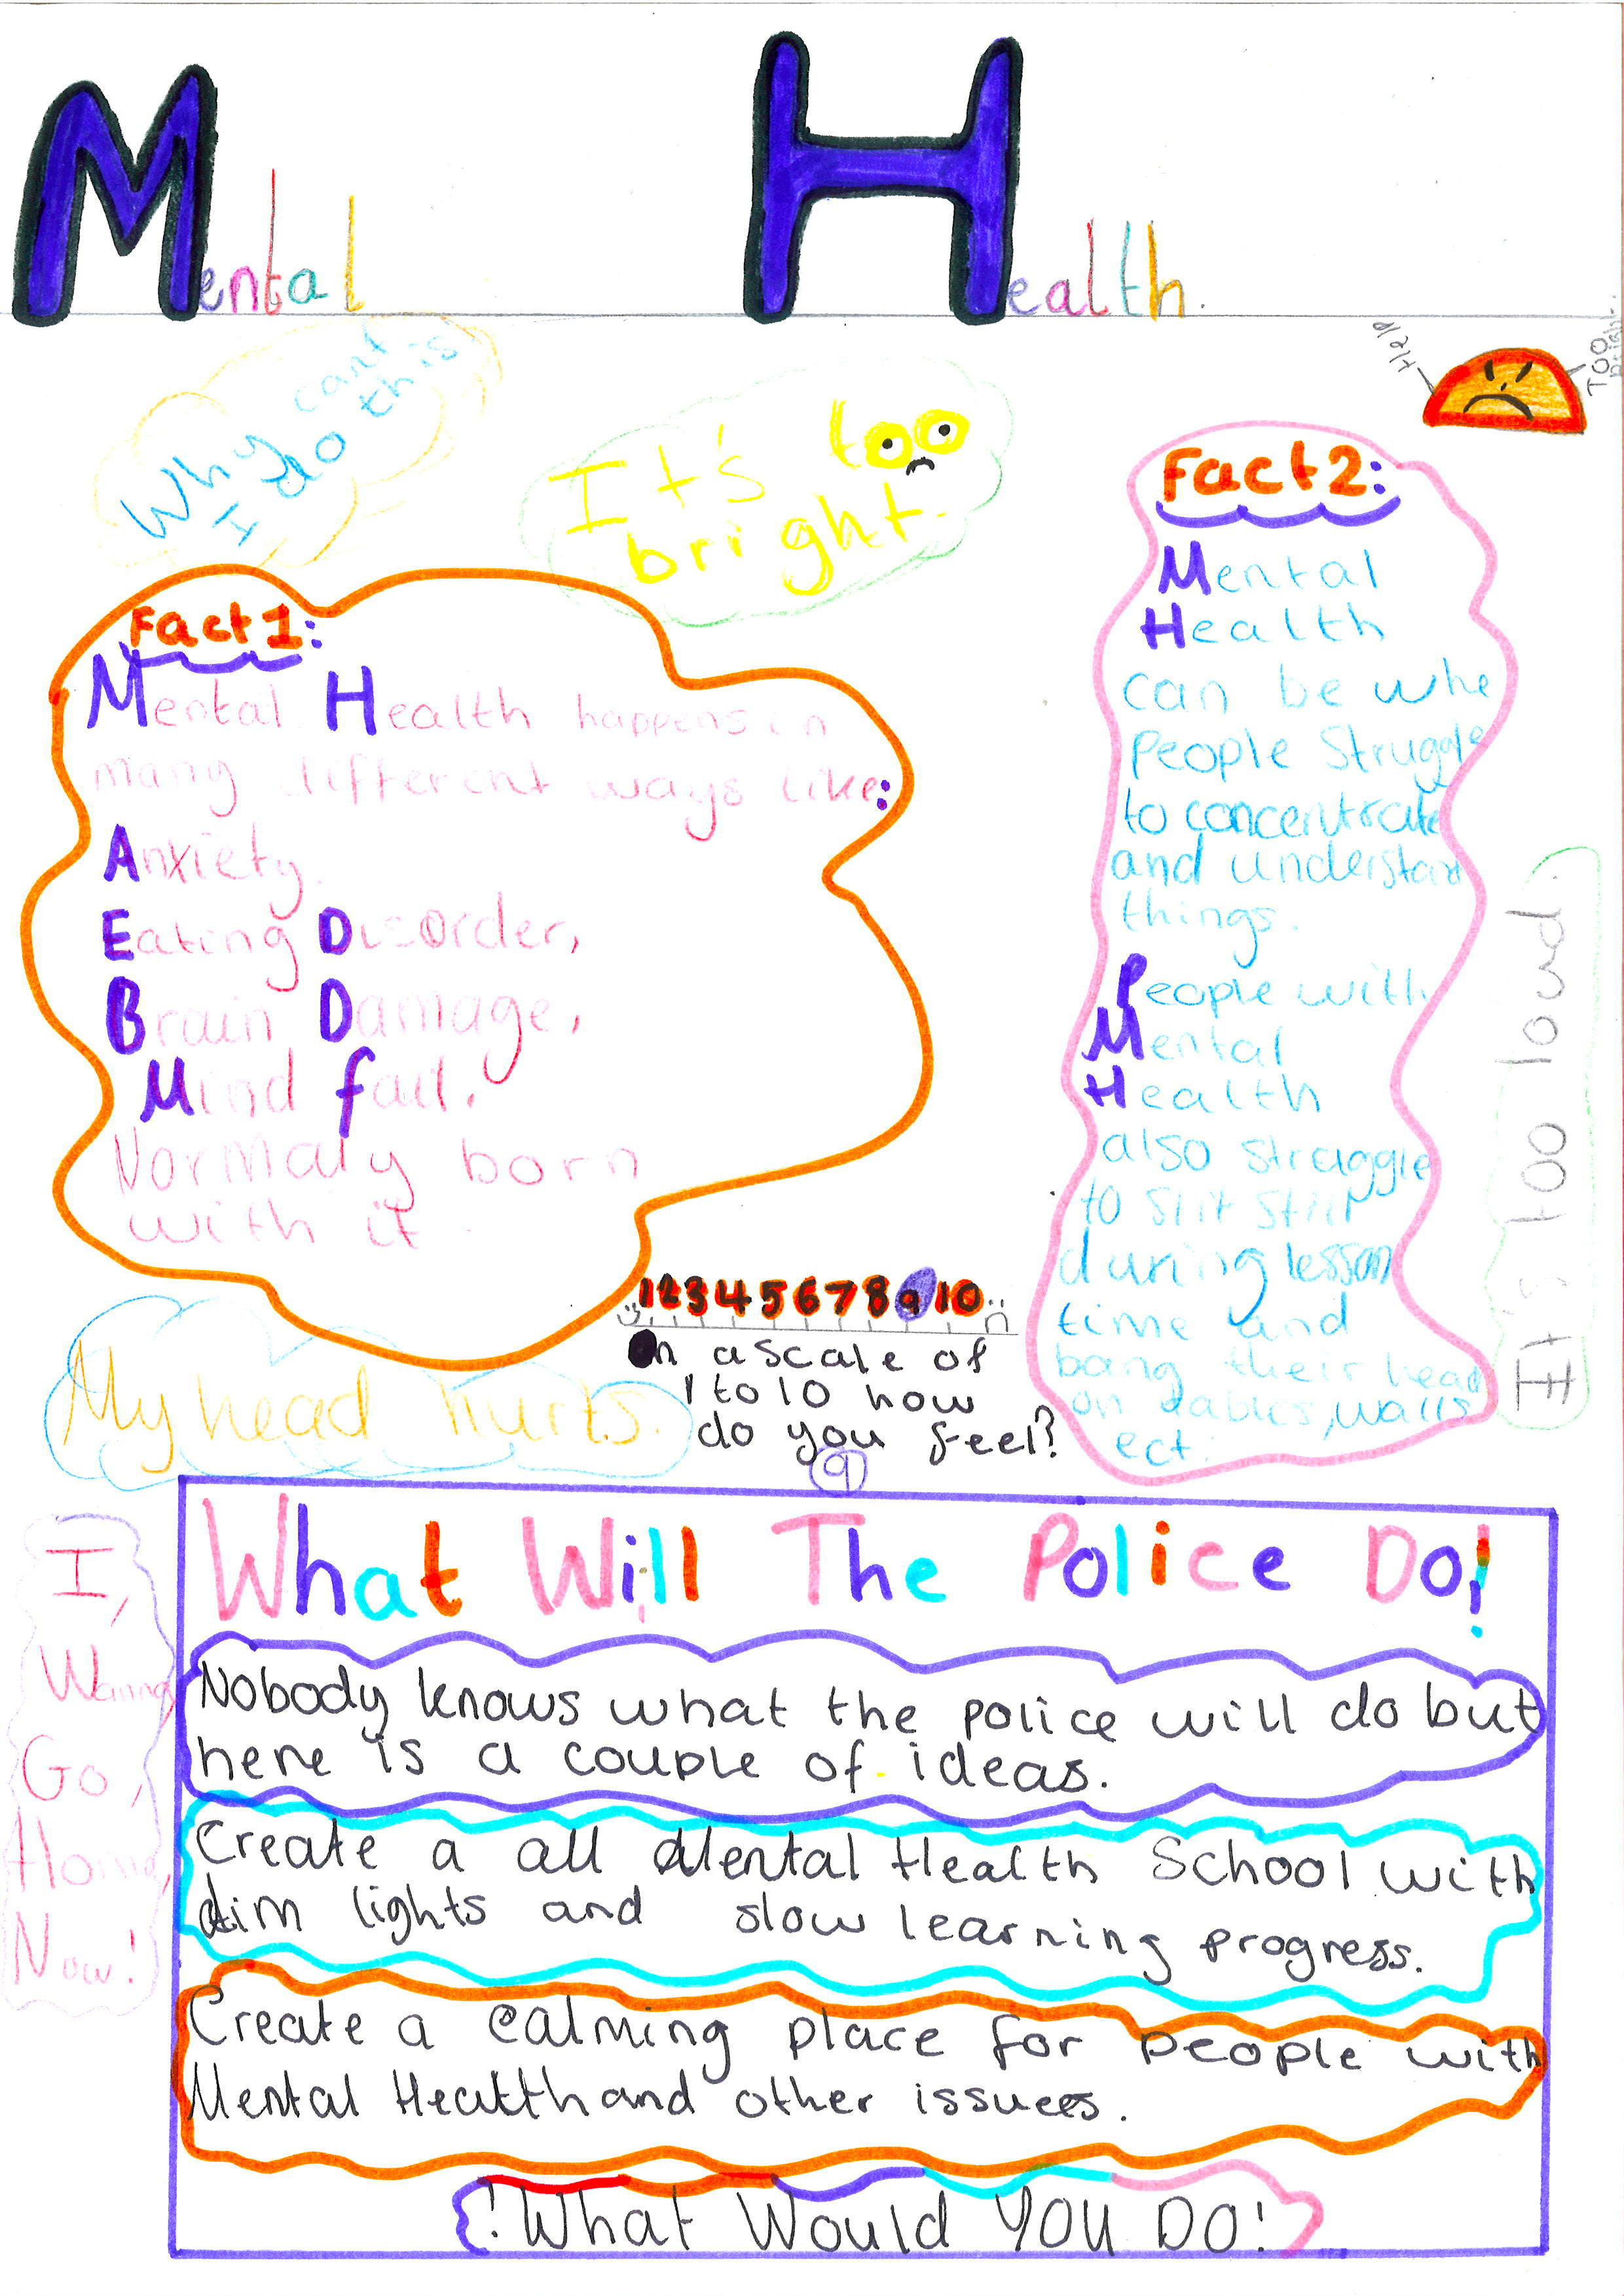 Mental Health.
Help
TOO
Bright
Why
cant
I do this
It's too
bright.
Fact 1:
Mental Health happens in
many different ways like:
Anxiety.
Eating Disorder,
Brain Damage,
Mind fail.
Normaly born
with it.
Fact 2:
Mental
Health
can be whe
People Struggle
to concentrate
and understan
things.
People with
Mental
Health
also struggle
to siit still
during lesson
time and
bang their head
on tables, walls
ect.
It's too loud
1 2 3 4 5 6 7 8 9 10
On a scale of
1 to 10 how
do you feel?
9
My head hurts.
I,
Wanna,
Go,
Home,
Now!
What Will The Police Do!
Nobody knows what the police will do but
here is a couple of ideas.
Create a all Mental Health School with
dim lights and slow learning progress.
Create a calming place for people with
Mental Health and other issuees.
!What Would YOU DO!